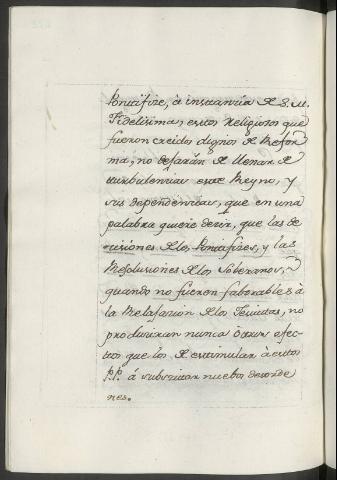 Pontifice, à instancia de S. M.
Fidelisima, estos Religiosos que
fueron creidos dignos de Refor
ma, no dejarán de llenar de
turbulencias este Reyno, y
sus dependencias, que en una
palabra quiere decir, que las de
cisiones de los Pontifices, y las
Resoluciones de los Soberanos,
quando no fueren faborables à
la Relajacion de los Jesuitas, no
produciran nunca otros efec-
tos que los de estimular à estos
P.P. á subscitar nuebos desorde
nes.